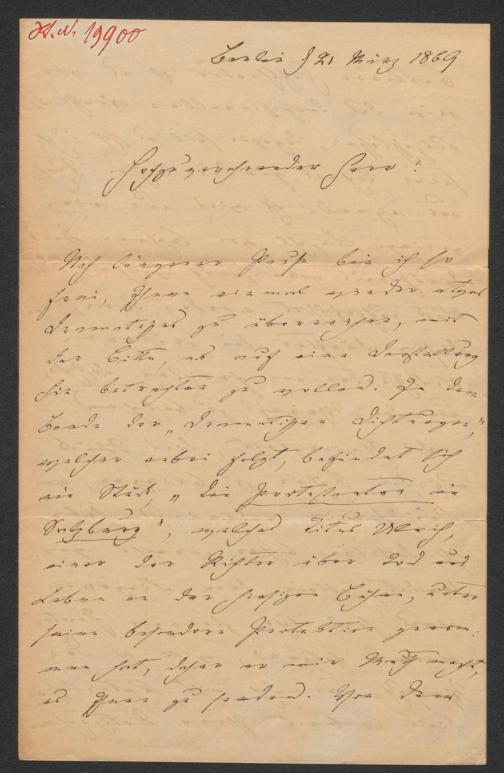 H. N. 19900
Berlin d 21 März 1869
Hochzuverehrender Herr!
Nach längerer Pause bin ich so
frei, Ihnen einmal wieder etwas
Dramatisches zu überreichen, mit
der Bitte, es auf eine Darstellung
hin betrachten zu wollen. In dem
Bande der „Dramatischen Dichtungen",
welcher anbei folgt, befindet sich
ein Stück, „Die Protestanten in
Salzburg", welches Titus Ulrich,
einer der Richter über Tod und
Leben an der hiesigen Bühne, unter
seine besondere Protektion genom-
men hat, daher er mir Muth macht,
es Ihnen zu senden. Von dem